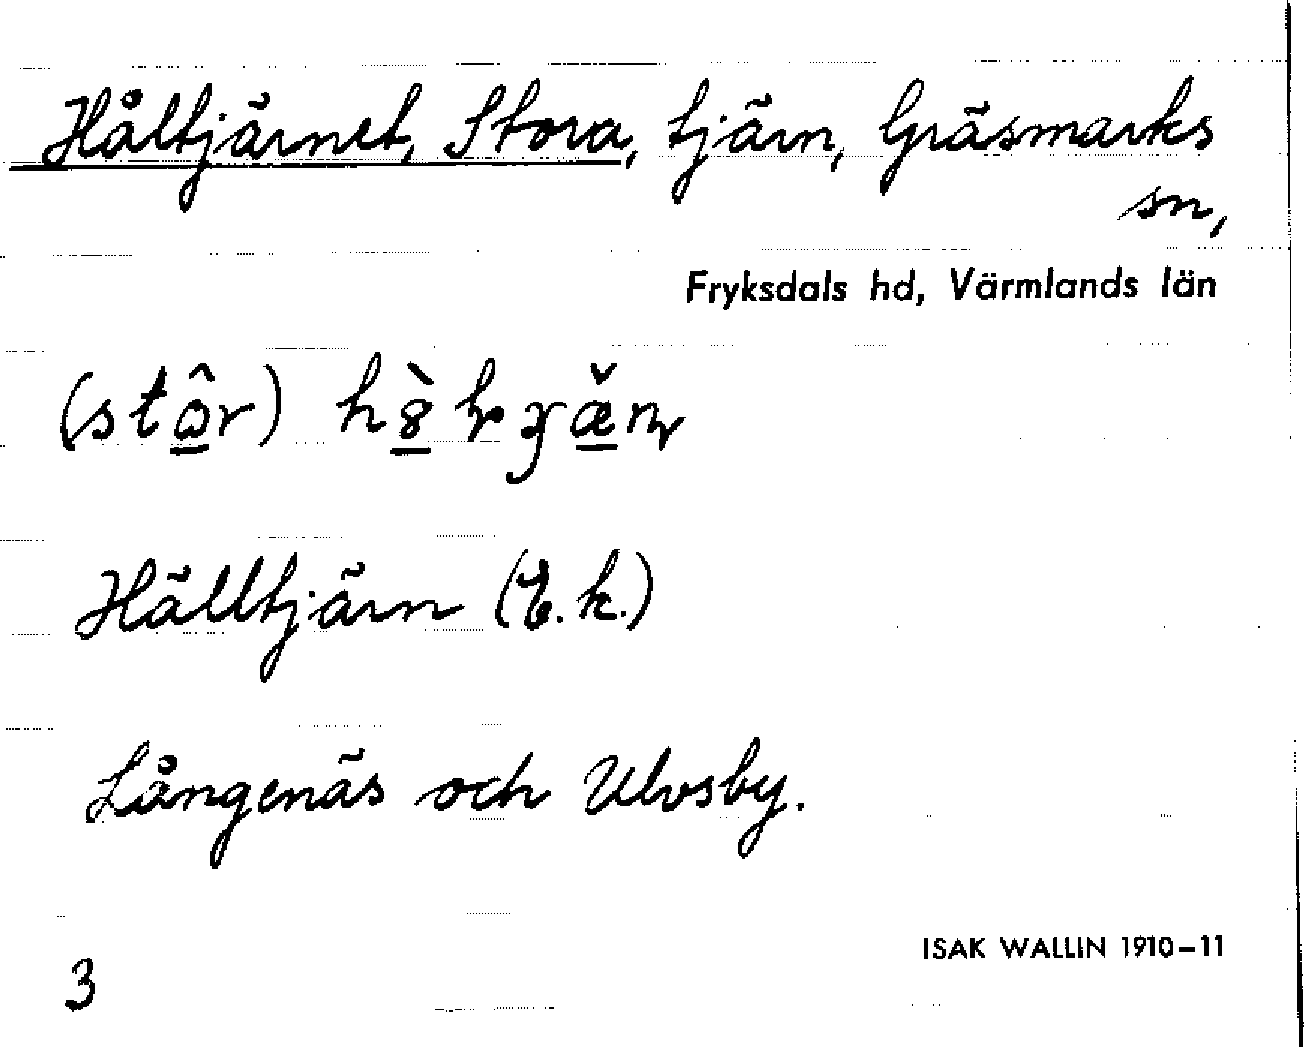 Håltjärnet, Stora, tjärn, Gräsmarks
sn,
Fryksdals hd, Värmlands län
(stôr)
Hälltjärn (E.k.)
Långenäs och Ulvsby.
ISAK WALLIN 1910–11
3